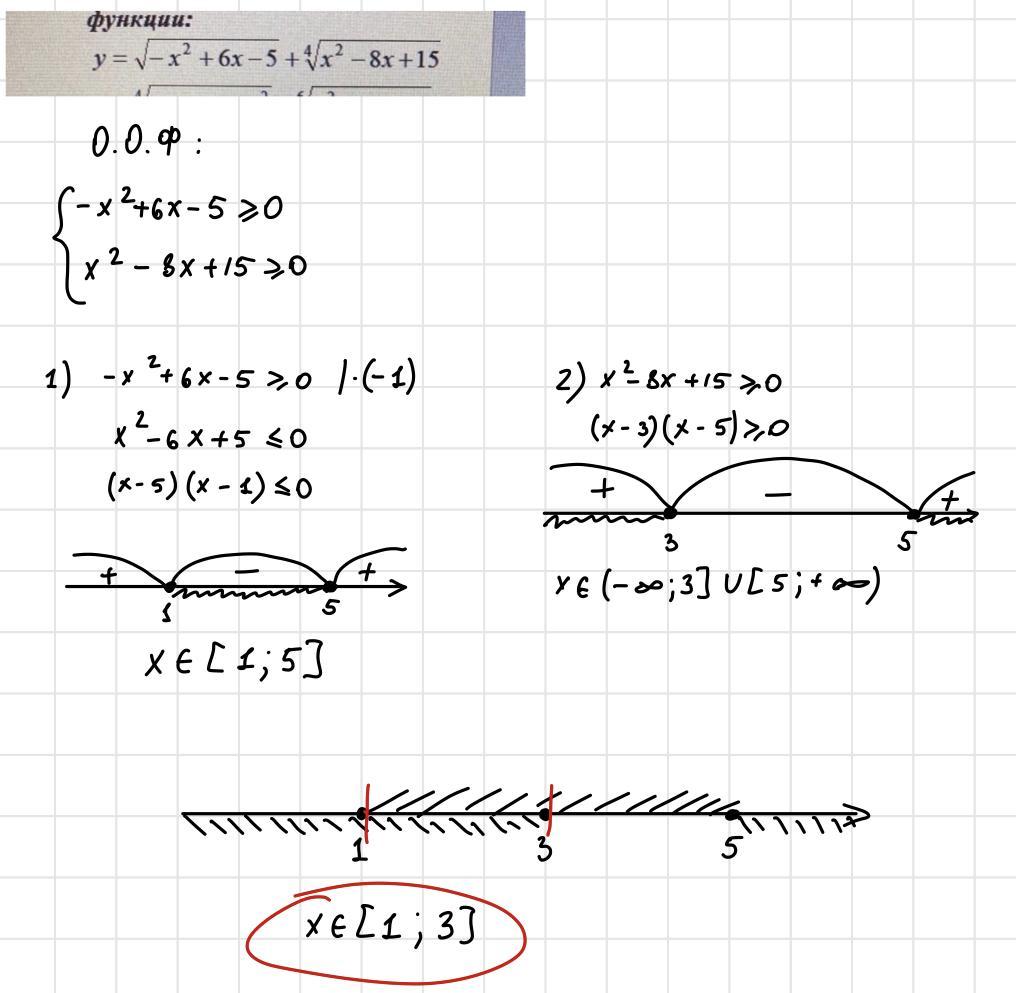 функции:
y = √(-x² + 6x - 5) + ⁴√(x² - 8x + 15)
О.О.Ф :
{ -x² + 6x - 5 ⩾ 0
x² - 8x + 15 ⩾ 0
1) -x² + 6x - 5 ⩾ 0 | · (-1)
x² - 6x + 5 ≤ 0
(x - 5)(x - 1) ≤ 0
+ - +
1 5
x ∈ [1; 5]
2) x² - 8x + 15 ⩾ 0
(x - 3)(x - 5) ⩾ 0
+ - +
3 5
x ∈ (-∞; 3] ∪ [5; +∞)
1 3 5
x
x ∈ [1; 3]